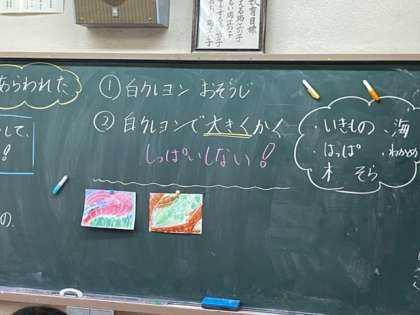 あらわれた
① 白クレヨン おそうじ
② 白クレヨンで大きくかく
しっぱいしない!
・いきもの 、海
・はっぱ ・わかめ
木 そら
して、
!
の、
教育目標